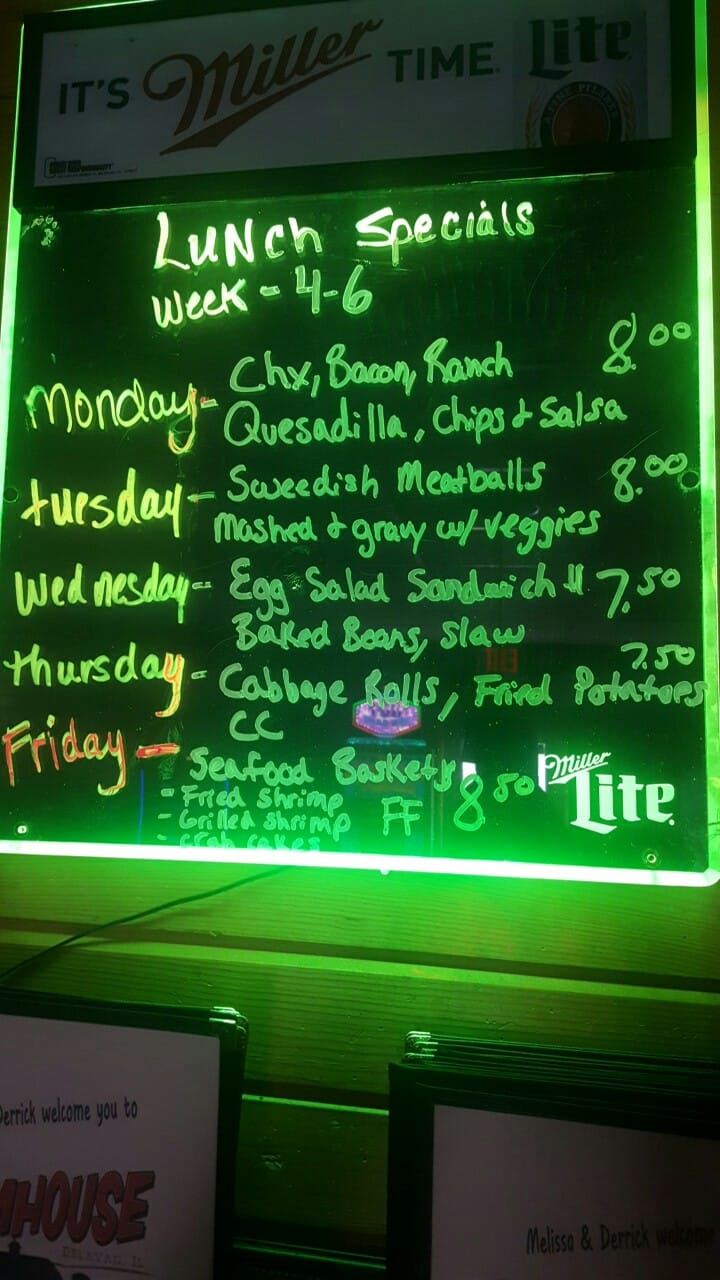 IT'S Miller TIME. Lite
A FINE PILSNER
LUNch Specials
Week - 4-6
Monday - Chx, Bacon, Ranch 8.00
Quesadilla, Chips & Salsa
tuesday - Sweedish Meatballs 8.00
Mashed & gravy w/ veggies
Wednesday - Egg Salad Sandwich 7.50
Baked Beans, Slaw
thursday - Cabbage Rolls, Fried Potatoes 7.50
CC
Friday - Seafood Baskets 8.50
- Fried Shrimp FF
- Grilled Shrimp
- Crab cakes
Miller
Lite
Derrick welcome you to
HOUSE
DELAVAN, IL
Melissa & Derrick welcome